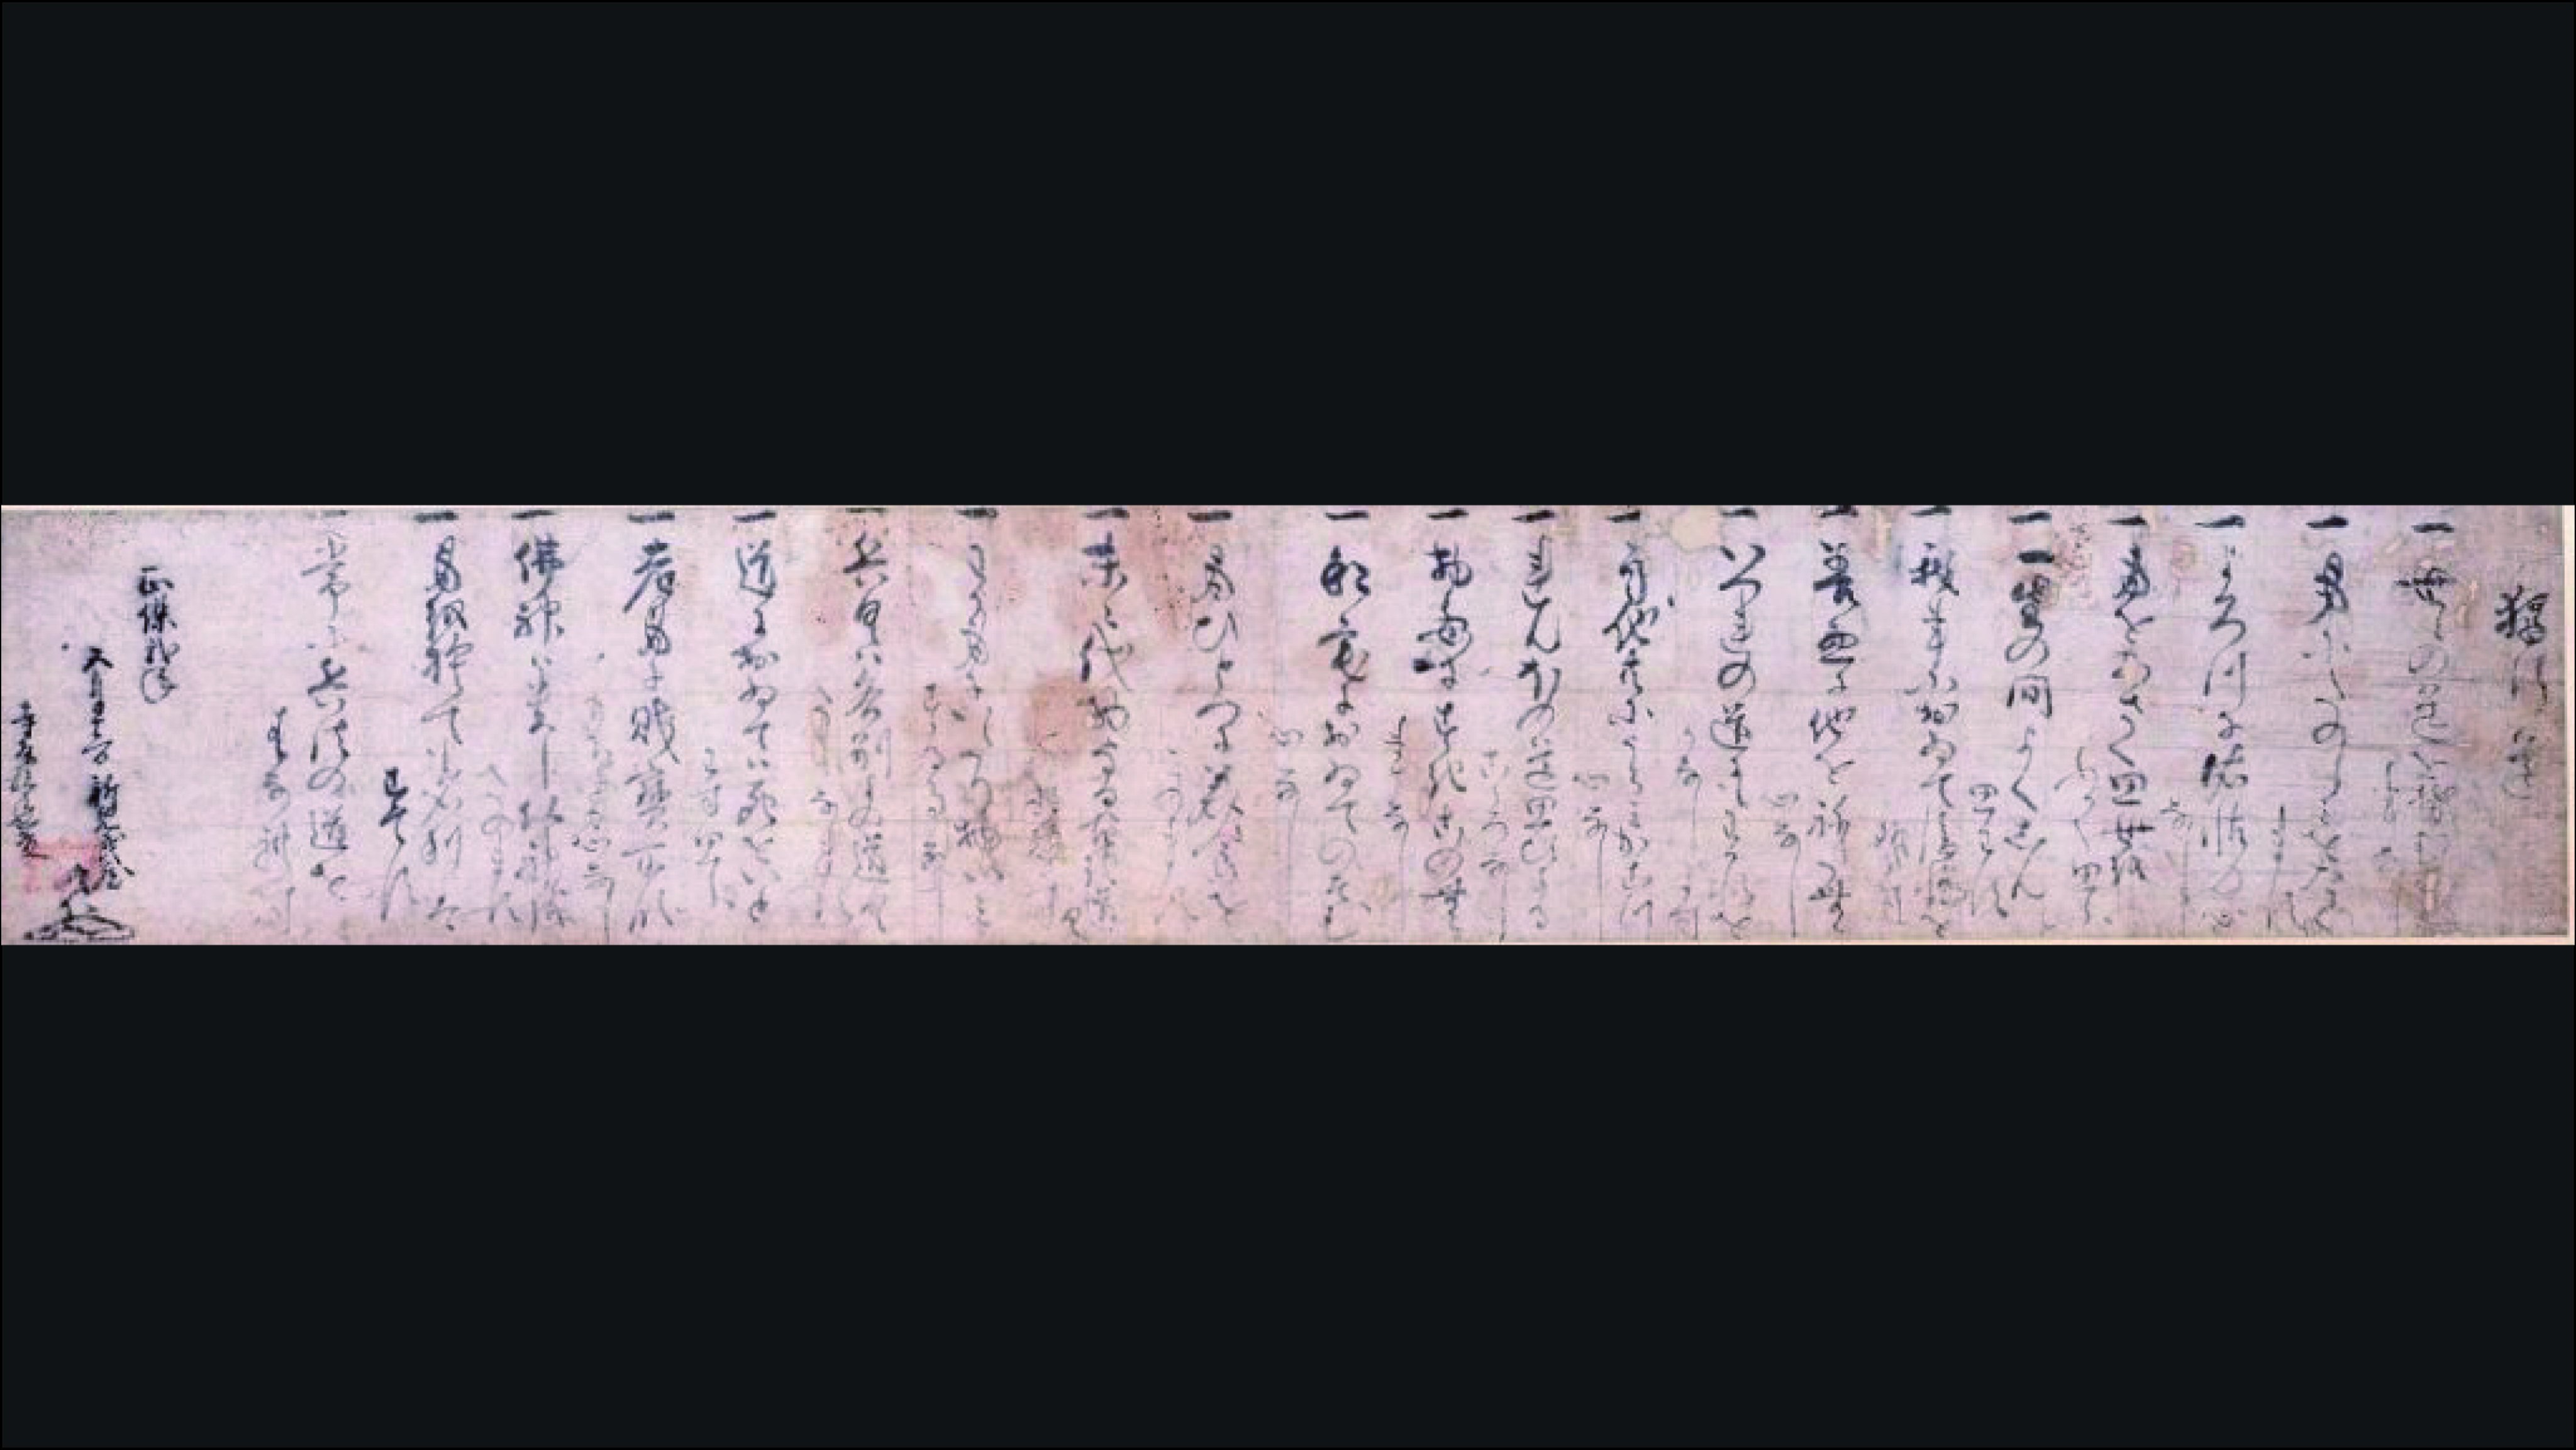 獨行道
一 世々の道をそむく
事なし
一 身にたのしみをたく
ます
一 よろつに依怙の心
なし
一 身をあさく思世を
ふかく思ふ
一 一生の間よくしん
思はす
一 我事におゐて後悔を
せす
一 善悪に他を祢たむ
心なし
一 いつれの道にもわかれを
かなします
一 自他共にうらみかこつ
心なし
一 れんほの道思ひよる
こゝろなし
一 物毎にすきこのむ
事なし
一 私宅におゐてのそむ
心なし
一 身ひとつに美食を
このます
一 末々代物なる
一 わか身にいたり物いみ
する事なし
一 兵具は各別よの道具
たしなます
一 道におゐては死をいと
はす思ふ
一 老身に財寶所領
一 佛神は貴し佛神を
たのます
一 身を捨ても名利は
すてす
一 常に兵法の道を
はなれす
正保弐年
五月十二日 新免武蔵
玄信
寺尾孫之丞殿